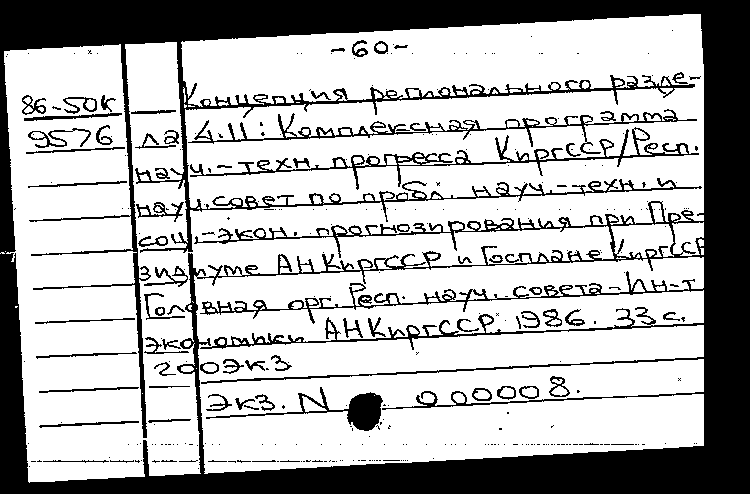 -60-
86-50К Концепция регионального разде-
9576 ла 4.11: Комплексная программа
науч.-техн. прогресса КиргССР/Респ.
науч. совет по пробл. науч.-техн. и
соц.-экон. прогнозирования при Пре-
зидиуме АН КиргССР и Госплане КиргССР
Головная орг. Респ. науч. совета-Ин-т
экономики АН КиргССР. 1986. 33 с.
200экз
Экз. N 000008.